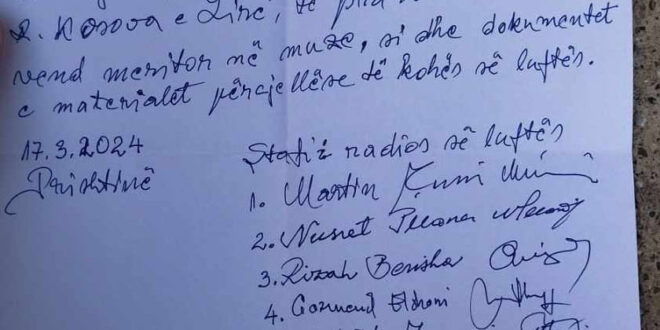 R. Kosova e Lirë, të
vend meritor në muze, si dhe dokumentet
e materialet përcjellëse të kohës së luftës.
17.3.2024
Prishtinë
Stafi i radios së luftës
1. Martin
2. Nusret
3. Rizah Berisha
4. Gazmend